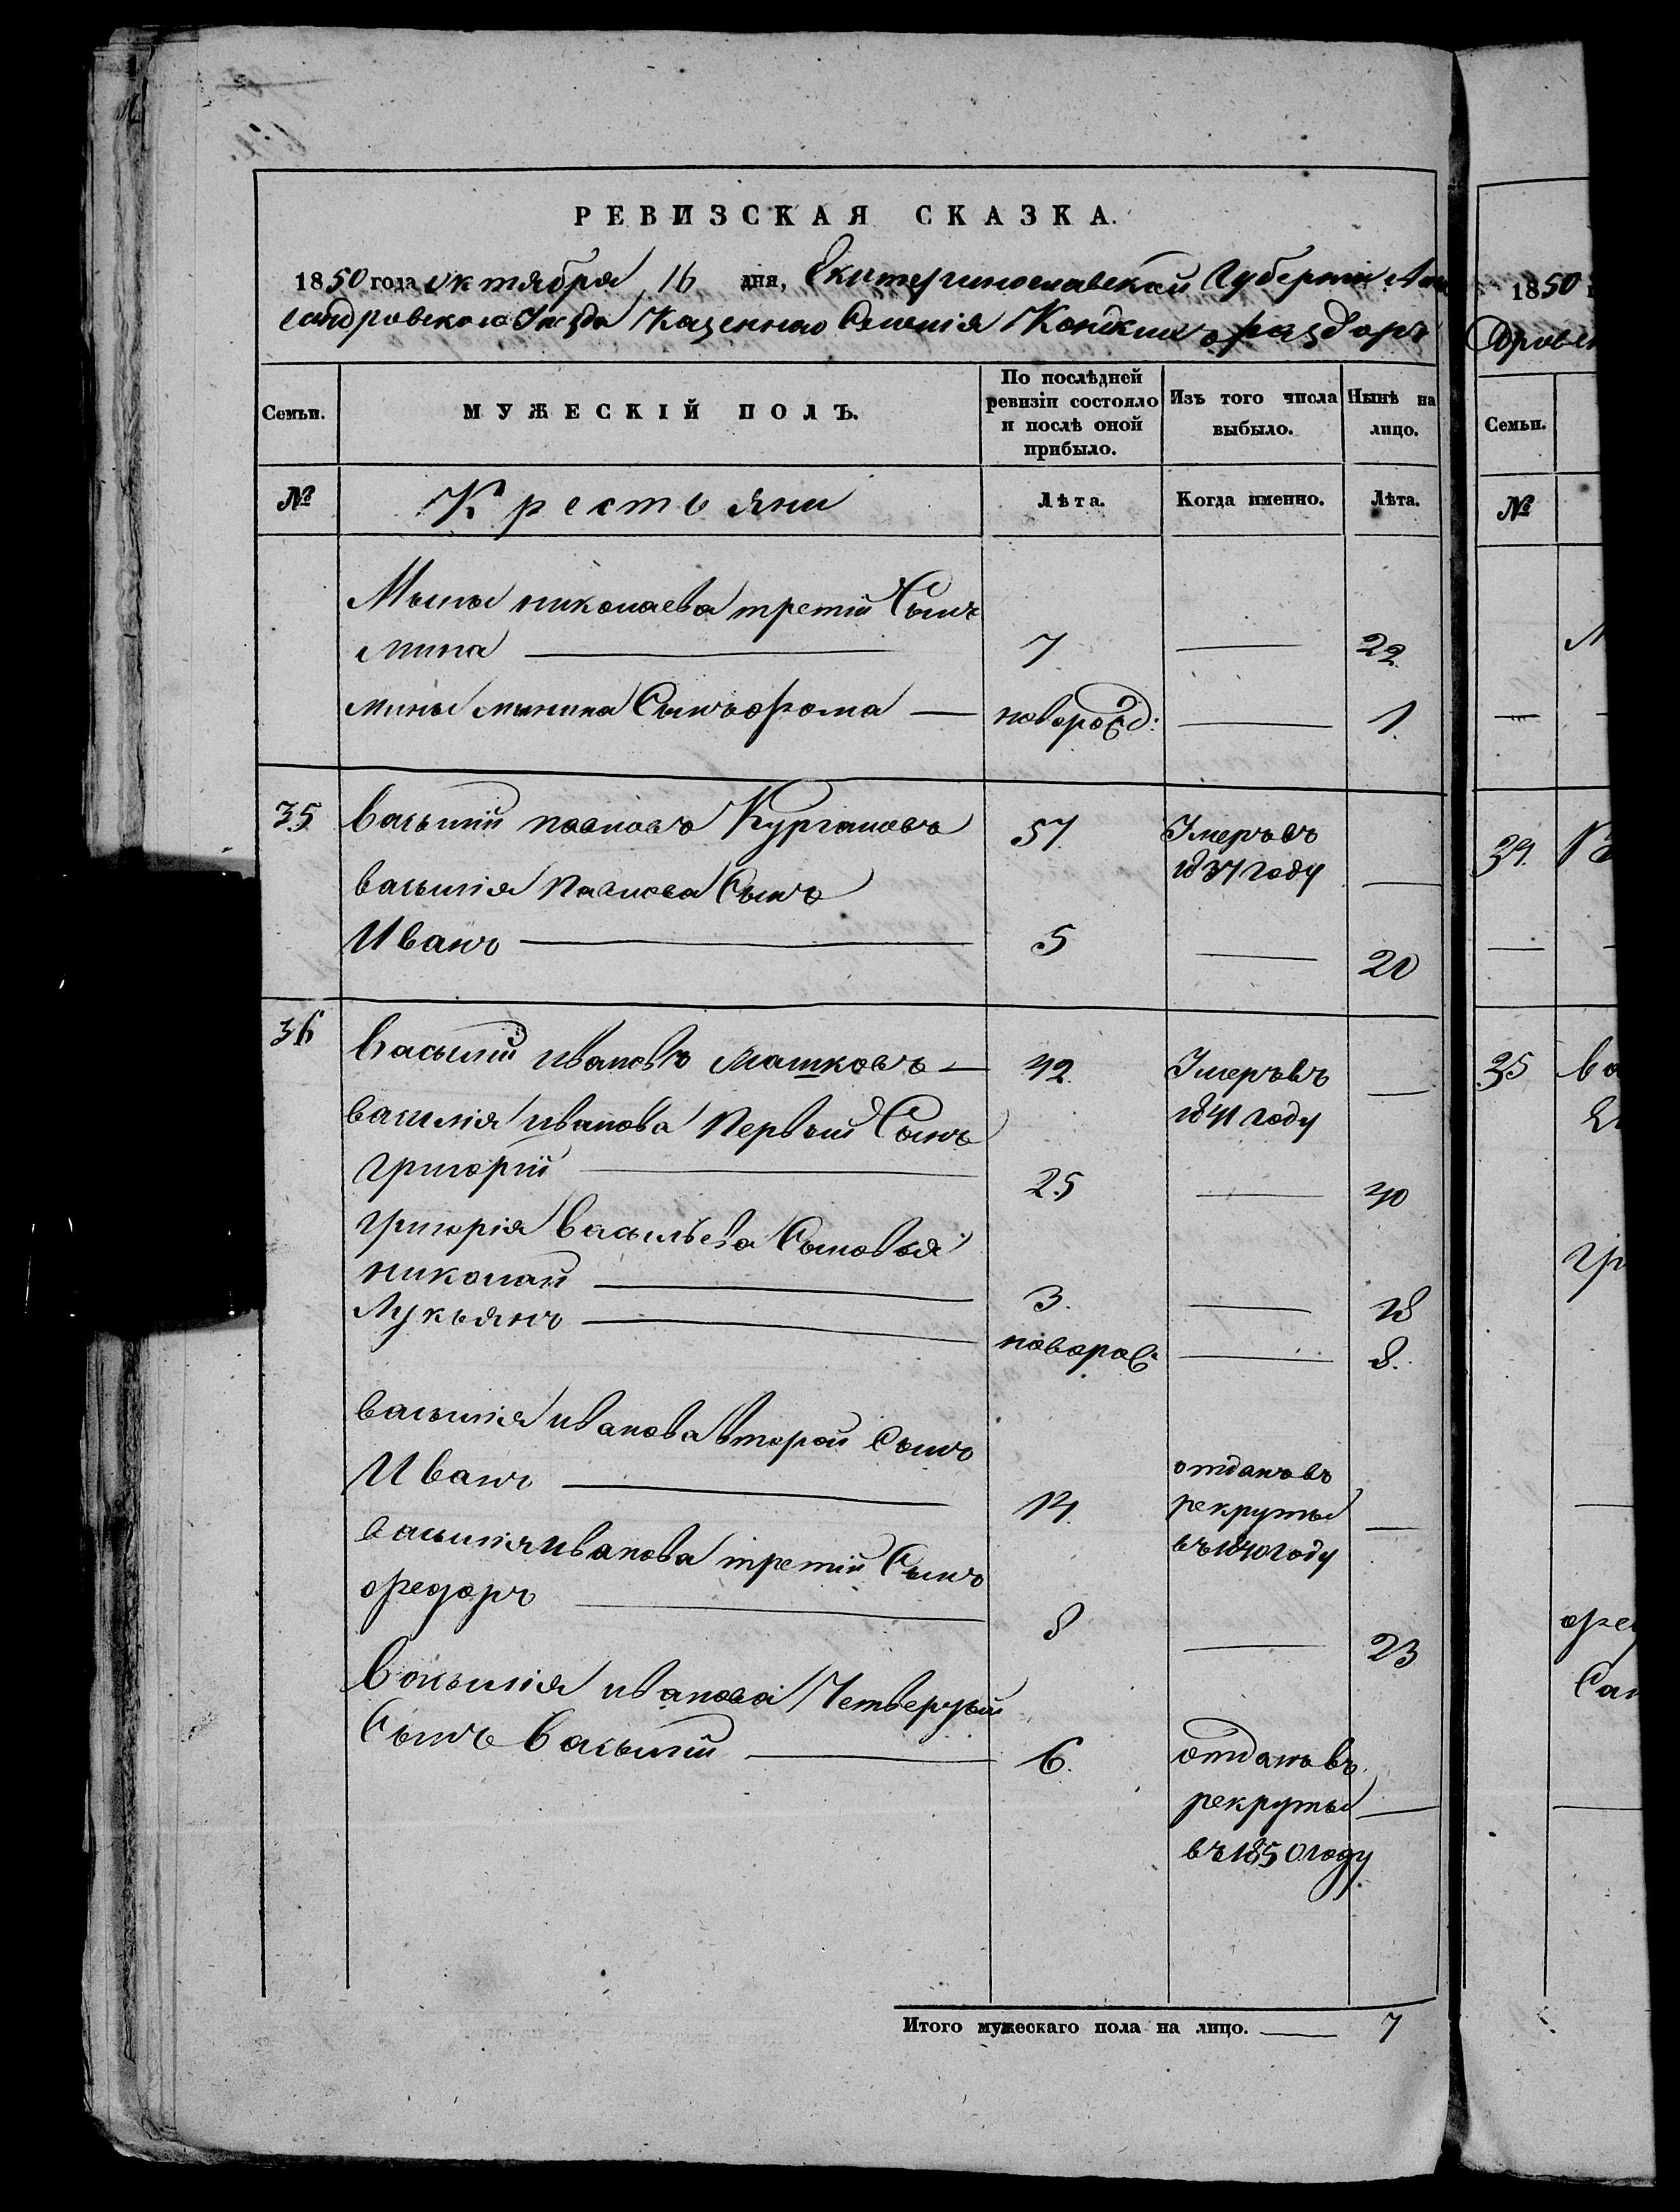 РЕВИЗСКАЯ СКАЗКА.
1850 года октября 16 дня, Екатеринославской Губернии Алек
сандровского Уезда Казенного Селения Конских раздоръ
Семьи.
МУЖЕСКІЙ ПОЛЪ.
По послѣдней ревизіи состояло и послѣ оной прибыло.
Изъ того числа выбыло.
Нынѣ на лицо.
№
Крестьяни
Лѣта.
Когда именно.
Лѣта.
николаева третий Сынъ
мина — 7 — 22
мины минина Сынъ фома — поворожд: — 1.
35 васылий павловъ Кургановъ 57. Умеръ въ
1837 году —
васылия павлова Сынъ
Иванъ — 5 — 20
36 Васылий ивановъ машковъ — 42. Умеръ въ —
василия иванова Первый Сынъ 1841 году
григорий — 25 — 40
григория васильева Сыновья
николай — 3. — 18
Лукьянъ — новорож — 8.
василия иванова второй Сынъ
Иванъ — 14. отданъ въ
рекруты —
въ 1840 году
васылия иванова третий Сынъ
федоръ — 8 — 23
Васылия иванова Четвертый
Сынъ Васылий — 6. отданъ въ
рекруты —
въ 1850 году
Итого мужескаго пола на лицо. — 7
1850
Семьи.
№
34.
35